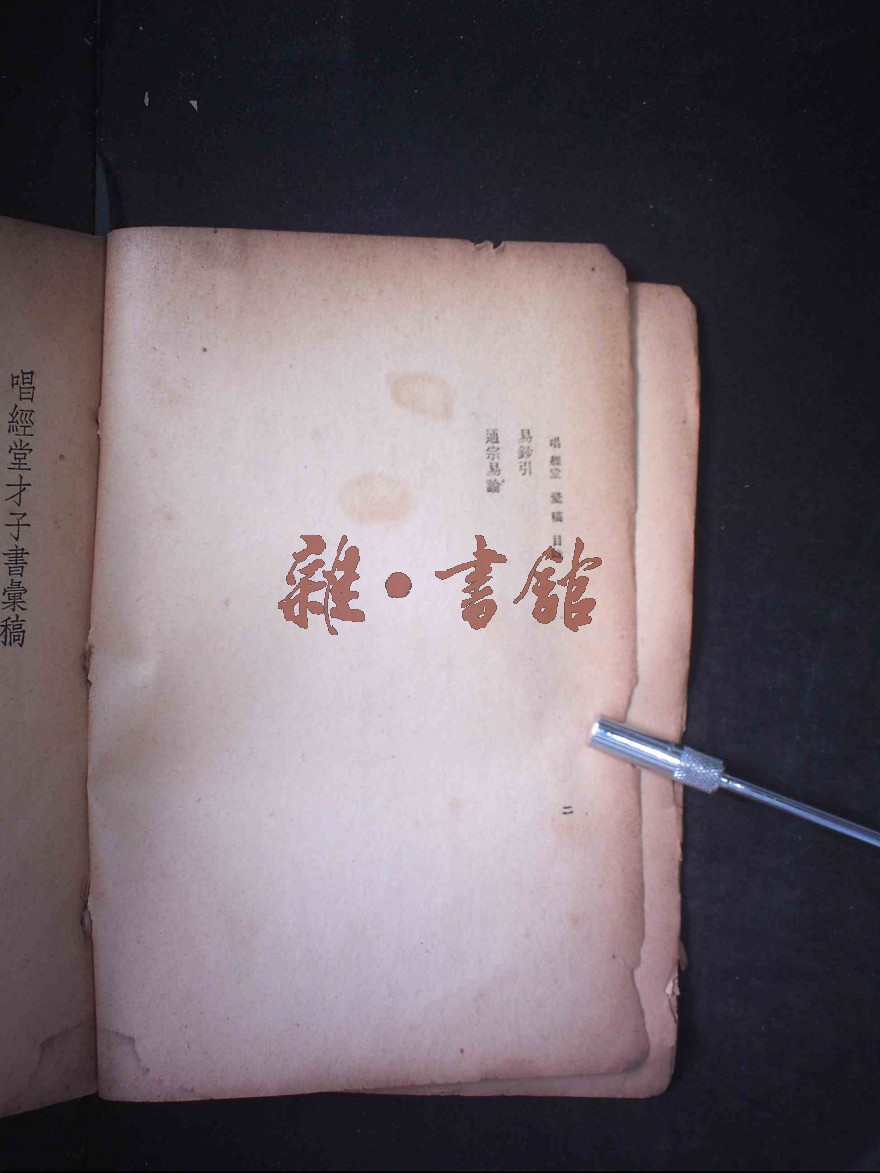 唱經堂彙稿目錄
易鈔引
通宗易論
二
唱經堂才子書彙稿
雜·書館